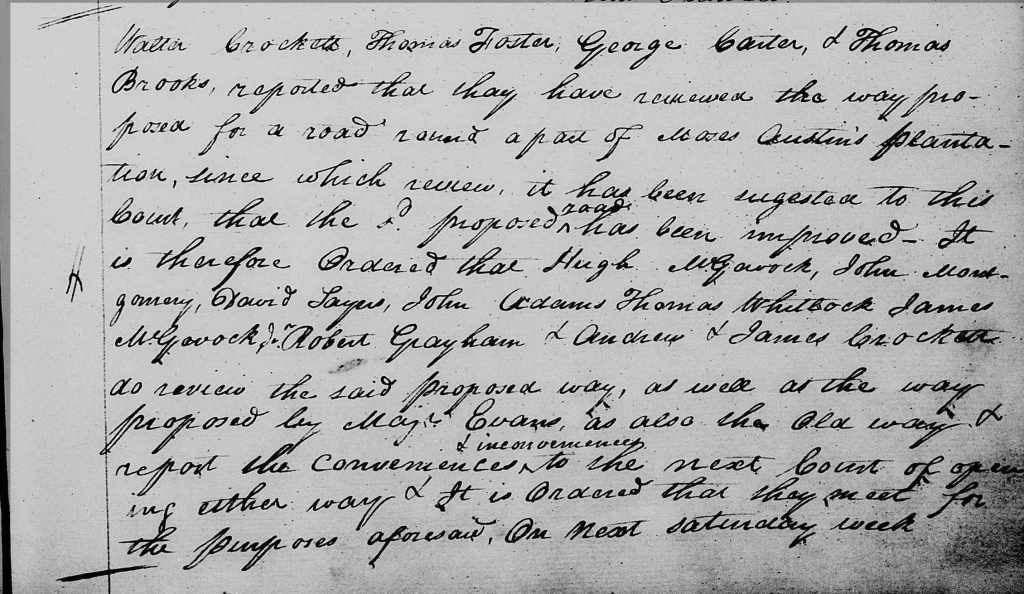 Walter Crockett, Thomas Foster, George Carter, & Thomas
Brooks, reported that thay have reviewed the way pro-
posed for a road round a part of Moses Austin's Planta-
tion, since which review, it has been sugested to this
Court, that the sd. proposed ^road has been improved - It
is therefore Ordered that Hugh McGavock, John Mont-
gomery, David Sayers, John Adams Thomas Whitlock James
McGavock Jr. Robert Grayham & Andrew & James Crockett
do review the said proposed way, as well as the way
proposed by Majr. Evans, as also the Old way &
report the Conveniences ^& inconveniences to the next Court of open
ing either way & It is Ordered that they meet for
the purposes aforesaid, On next saturday week